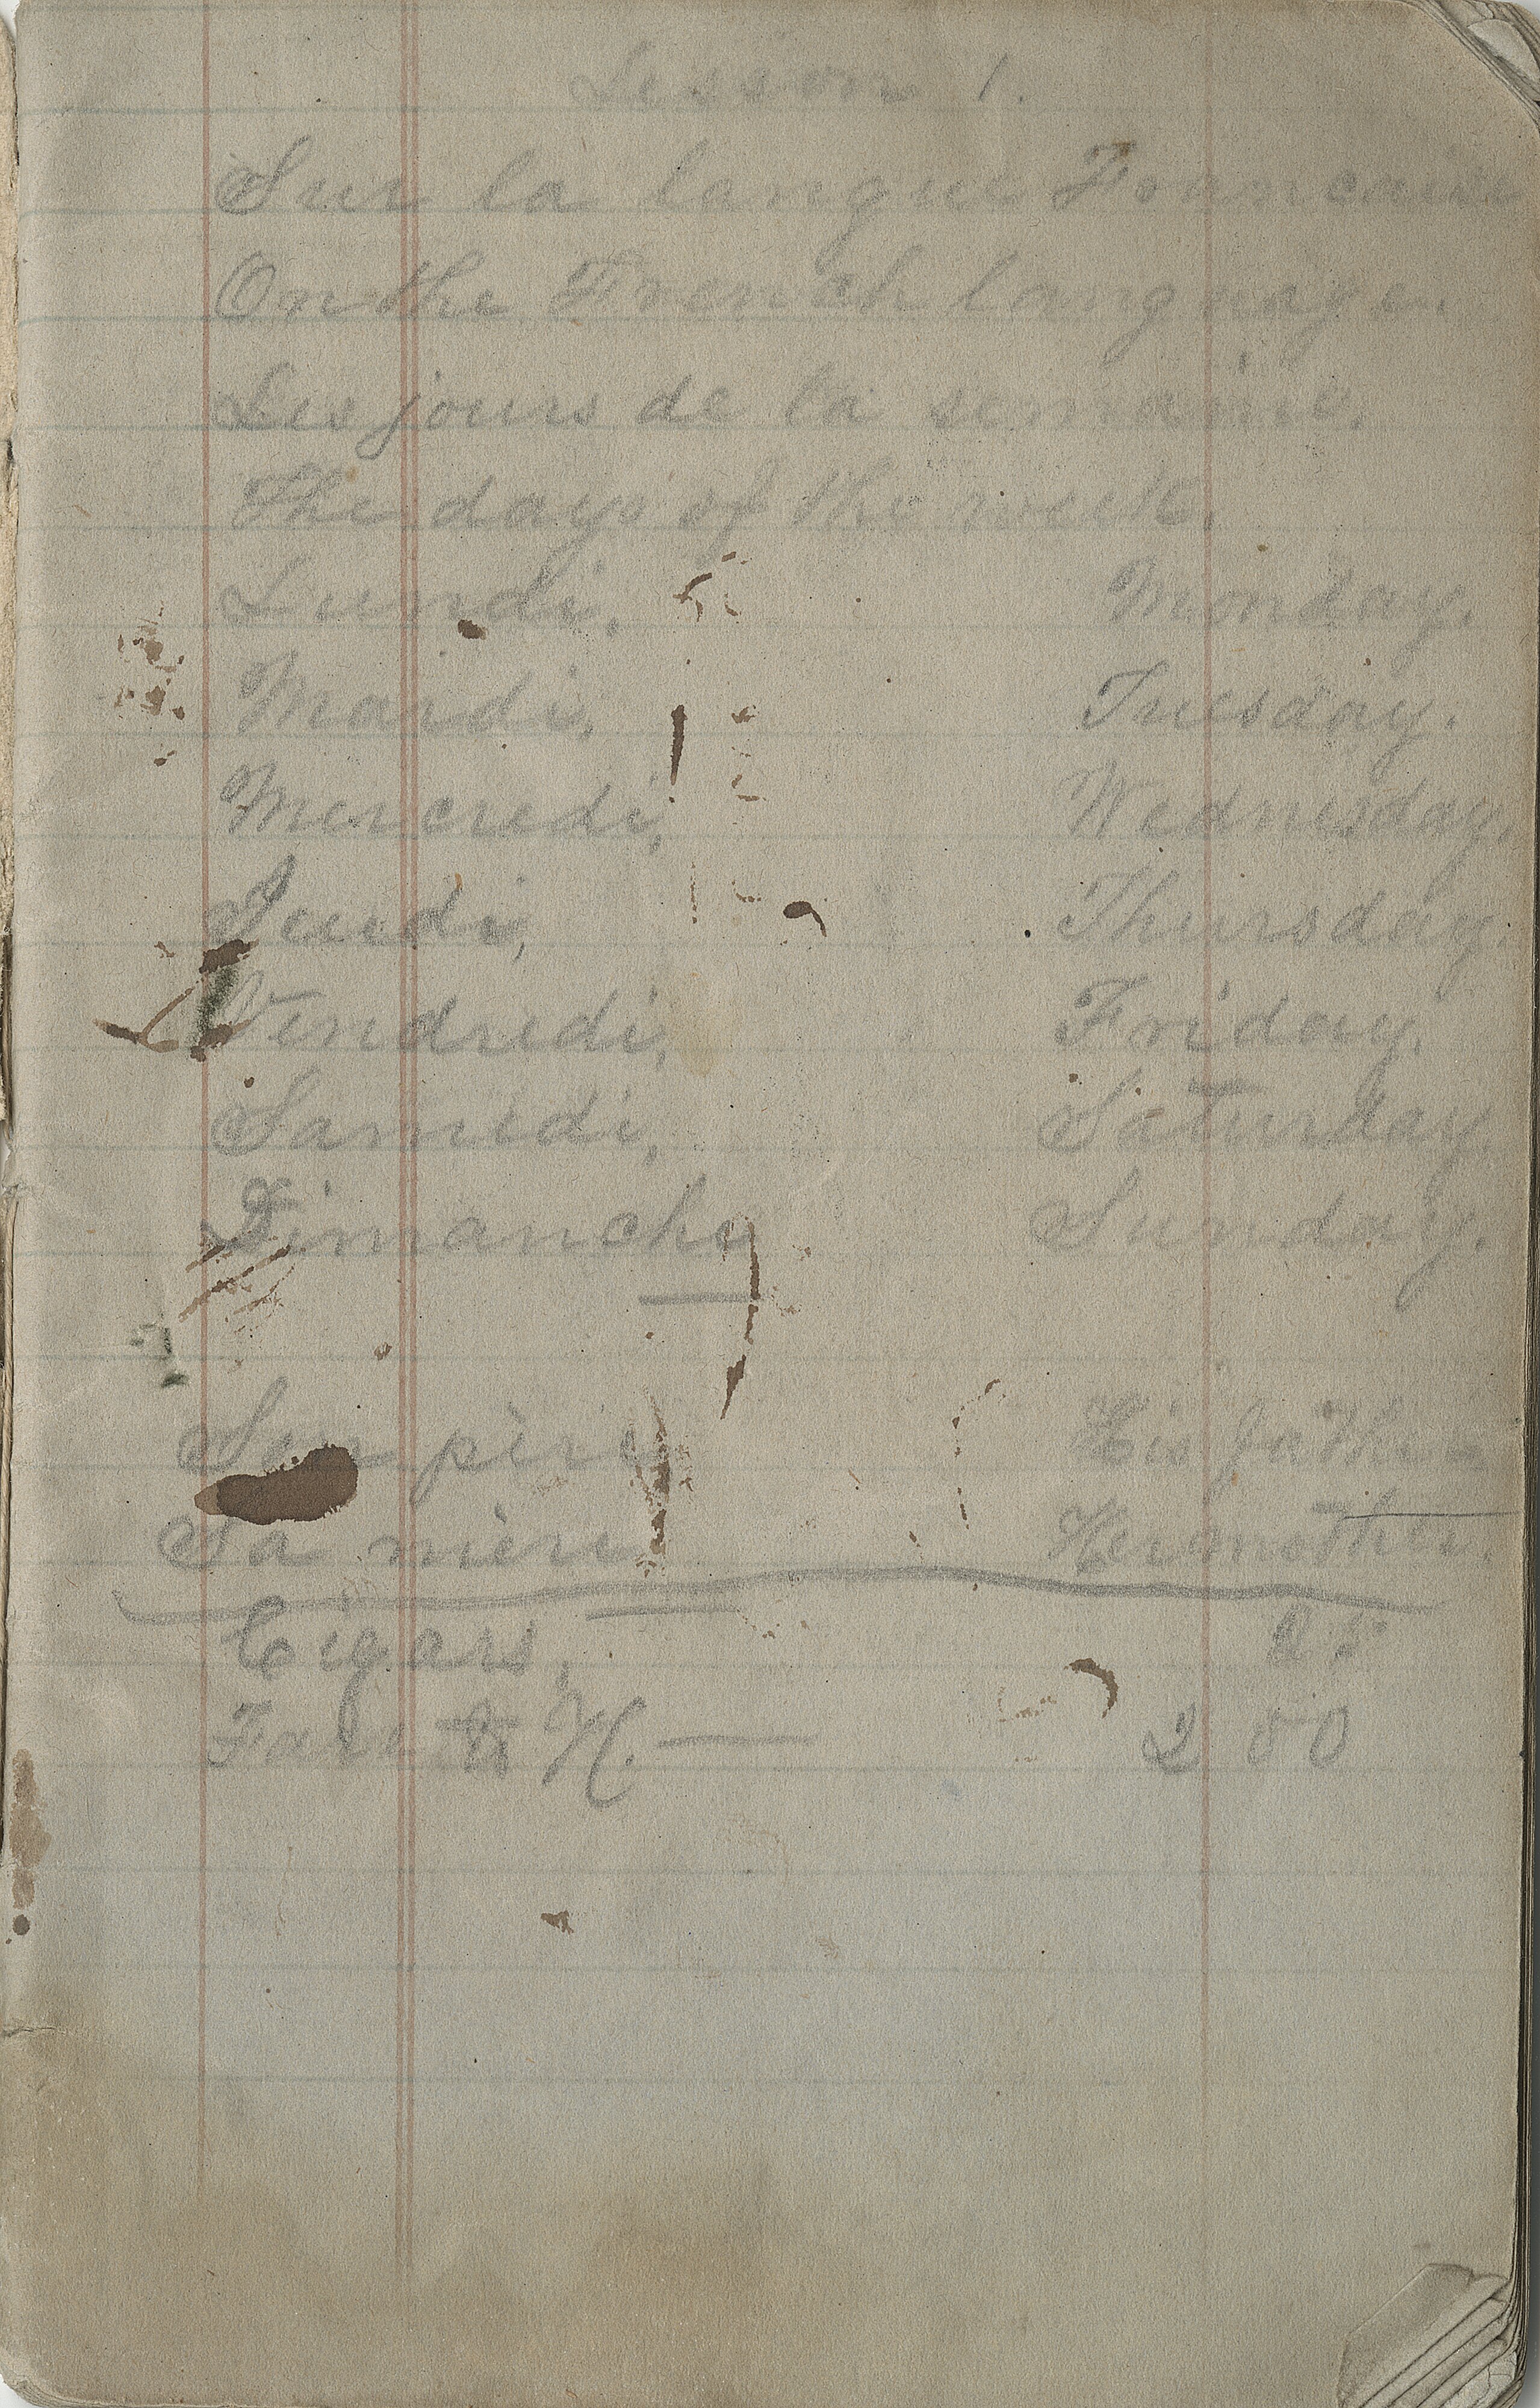 Lesson 1.
Sur la langue Francaise
On the French language.
Les jours de la semaine.
The days of the week.
Lundi, Monday.
Mardi, Tuesday.
Mercredi, Wednesday.
Jeudi, Thursday.
Vendredi, Friday.
Samedi, Saturday.
Dimanche Sunday.
Son père His father
Sa mère Her mother.
Cigars, 25
Fare to N. — 2 80